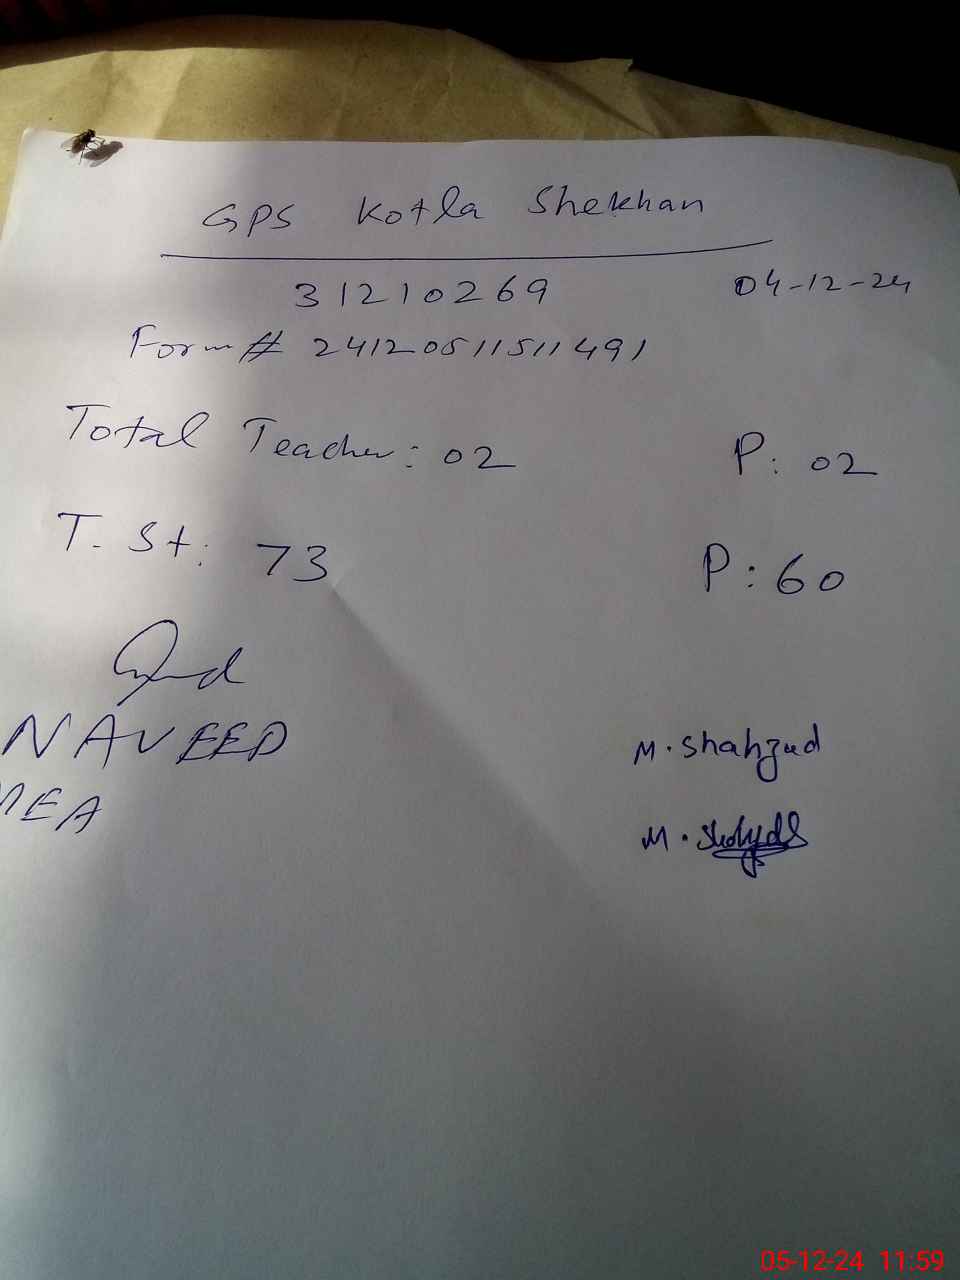 GPS Kotla Shekhan
31210269 04-12-24
Form # 24120511511491
Total Teacher: 02 P: 02
T. St: 73 P: 60
NAVEED
MEA
M. Shahzad
M.
05-12-24 11:59